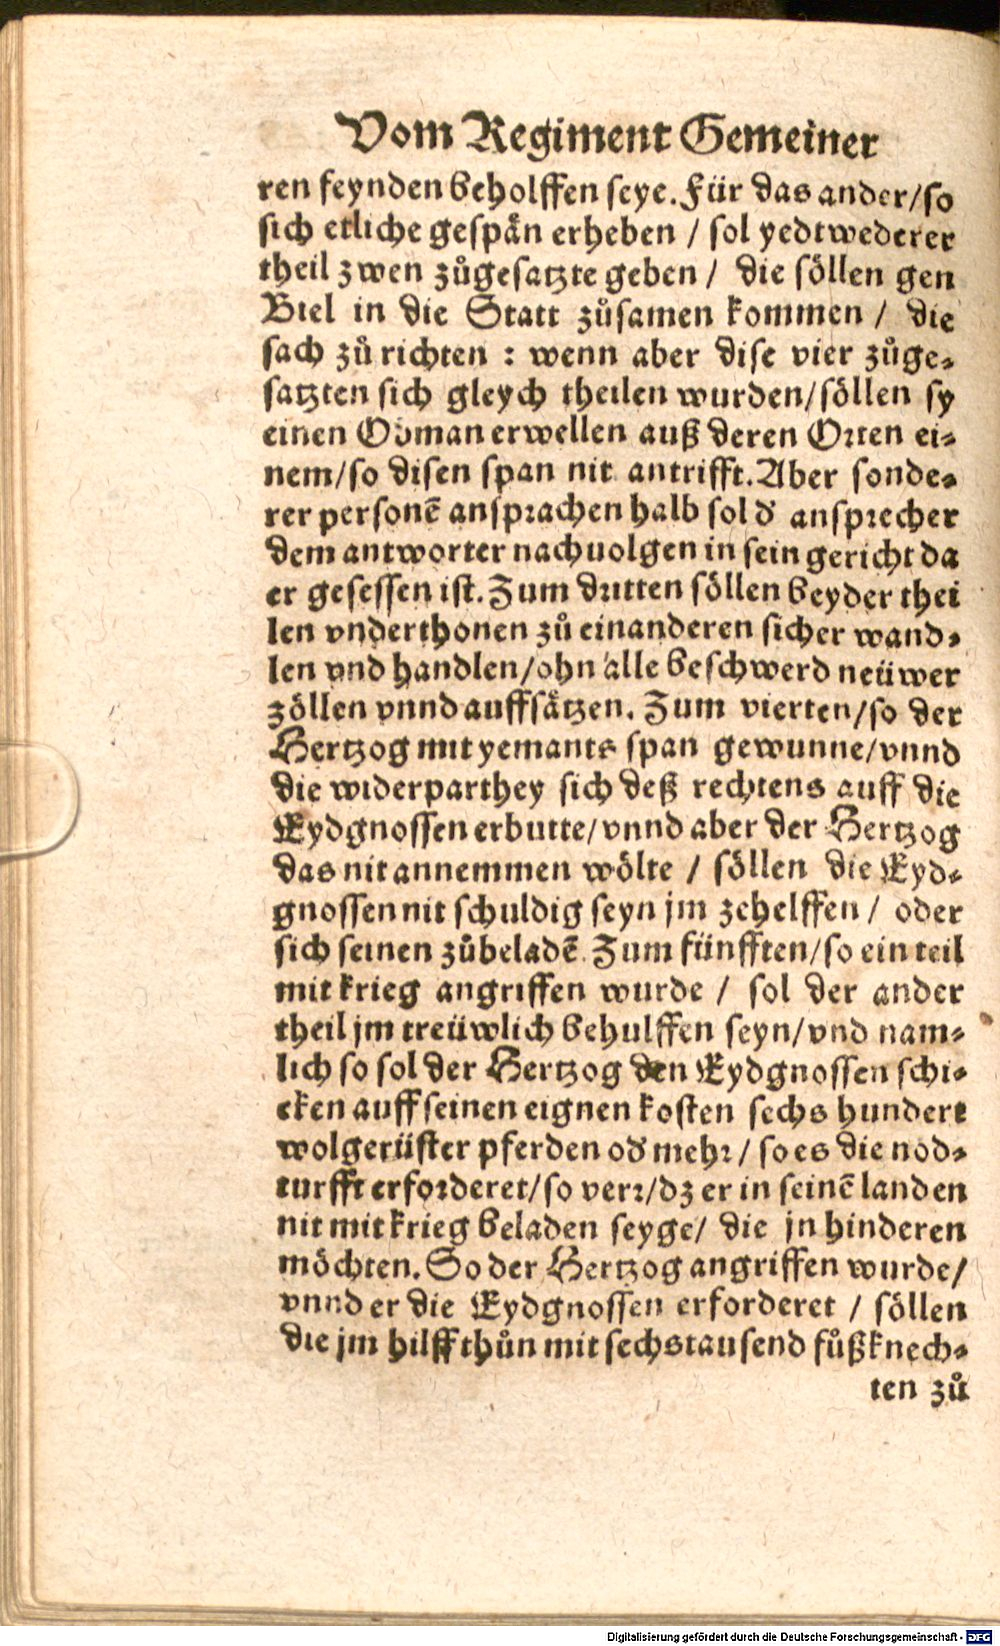 Vom Regiment Gemeiner
ren feynden beholffen seye. Für das ander/so
sich etliche gespån erheben / sol yedtwederer
theil zwen zůgesatzte geben / die söllen gen
Biel in die Statt zůsamen kommen / die
sach zů richten : wenn aber dise vier zůge⸗
satzten sich gleych theilen wurden/söllen sy
einen Obman erwellen auß deren Orten ei⸗
nem/so disen span nit antrifft. Aber sonde⸗
rer personē ansprachen halb sol dʼ ansprecher
dem antworter nachuolgen in sein gericht da
er gesessen ist. Zum dritten söllen beyder thei
len vnderthonen zů einanderen sicher wand⸗
len vnd handlen/ohn alle beschwerd neüwer
zöllen vnnd auffsätzen. Zum vierten/so der
Hertzog mit yemants span gewunne/vnnd
die widerparthey sich deß rechtens auff die
Eydgnossen erbutte/vnnd aber der Hertzog
das nit annemmen wölte / söllen die Eyd⸗
gnossen nit schuldig seyn jm zehelffen / oder
sich seinen zůbeladē. Zum fünfften/so ein teil
mit krieg angriffen wurde / sol der ander
theil jm treüwlich behulffen seyn/vnd nam⸗
lich so sol der Hertzog den Eydgnossen schi⸗
cken auff seinen eignen kosten sechs hundert
wolgerüster pferden odʼ mehr / so es die nod⸗
turfft erforderet/so verr/dz er in seinē landen
nit mit krieg beladen seyge/ die jn hinderen
möchten. So der Hertzog angriffen wurde/
vnnd er die Eydgnossen erforderet / söllen
die jm hilff thůn mit sechstausend fůßknech⸗
ten zů
Digitalisierung gefördert durch die Deutsche Forschungsgemeinschaft - DFG